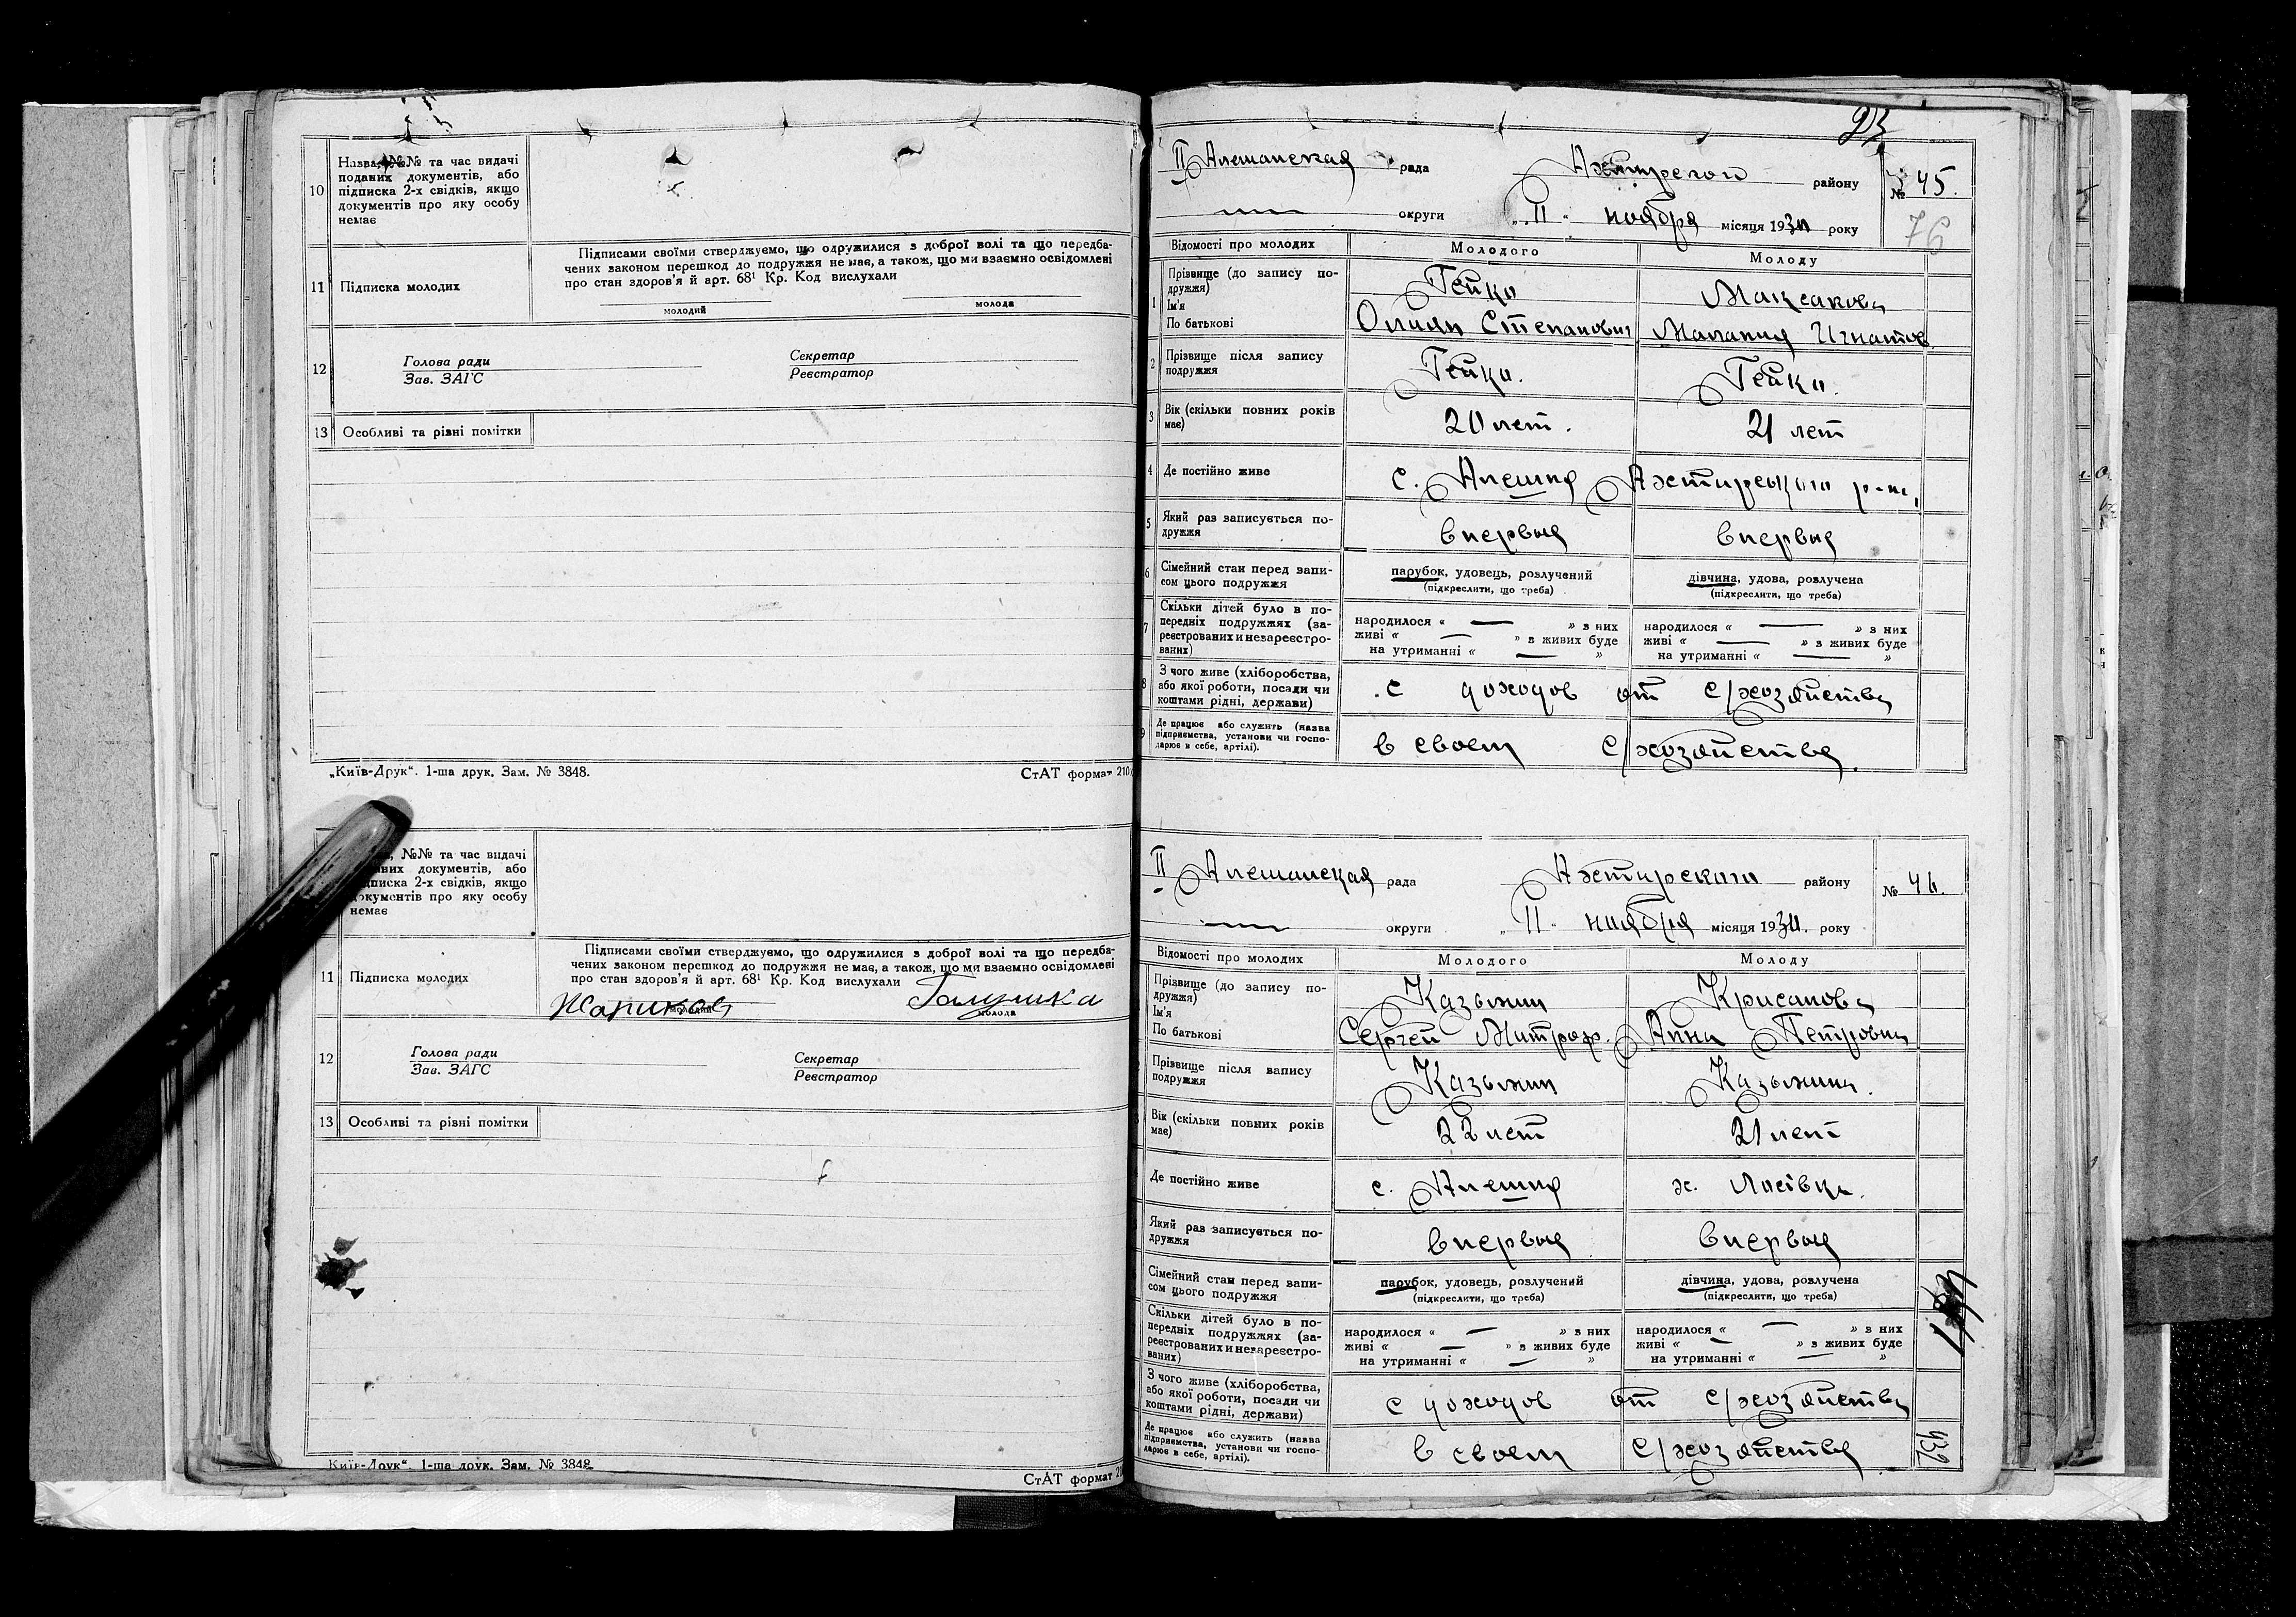 10 Назва, №№ та час видачі
поданих документів, або
підписка 2-х свідків, якщо
документів про яку особу
немає
11 Підписка молодих
Підписами своїми стверджуємо, що одружилися з доброї волі та що передба-
чених законом перешкод до подружжя немає, а також, що ми взаємно освідомлені
про стан здоров'я й арт. 68¹ Кр. Код вислухали
молодий молода
12 Голова ради Секретар
Зав. ЗАГС Реєстратор
13 Особливі та різні помітки
„Київ-Друк“. 1-ша друк. Зам. № 3848. СтАТ формат 210
№№ та час видачі
документів, або
підписка 2-х свідків, якщо
документів про яку особу
немає
11 Підписка молодих
Підписами своїми стверджуємо, що одружилися з доброї волі та що передба-
чених законом перешкод до подружжя не має, а також, що ми взаємно освідомлені
про стан здоров'я й арт. 68¹ Кр. Код вислухали
молодий молода
12 Голова ради Секретар
Зав. ЗАГС Реєстратор
13 Особливі та різні помітки
Київ-Друк“. 1-ша друк. Зам. № 3848
СтАТ формат
23
II Алешанская рада Ахтирског району № 45.
округи „II“ ноября місяця 1930 року 76
Відомості про молодих Молодого Молоду
1 Прізвище (до запису по-
дружжя) Гейко Максакова
Ім'я
По батькові Степанович Малания Игнатов
2 Прізвище після запису
подружжя Гейко. Гейко.
3 Вік (скільки повних років
має) 20 лет. 21 лет
4 Де постійно живе с. Алешня Ахтирського р-на,
5 Який раз записується по-
дружжя впервыя впервыя
6 Сімейний стан перед запи-
сом цього подружжя
парубок, удовець, розлучений дівчина, удова, розлучена
(підкреслити, що треба) (підкреслити, що треба)
7 Скільки дітей було в по-
передніх подружжях (за-
реєстрованих и незареєстро-
ваних)
народилося « » з них народилося « » з них
живі « » з живих буде живі « » з живих буде
на утриманні « » на утриманні « »
8 З чого живе (хліборобства,
або якої роботи, посади чи
коштами рідні, держави)
с доходов от с/хозяйства
9 Де працює або служить (назва
підприємства, установи чи госпо-
дарює в себе, артілі).
в своем с/хозяйстве.
II Алешанская рада Ахтирского району № 46.
округи „II“ ноября місяця 1930. року
Відомості про молодих Молодого Молоду
Прізвище (до запису по-
дружжя) Казьмин Крисанова
Ім'я
По батькові Сергей Митроф. Анна Петровна
Прізвище після запису
подружжя Казьмин Казьмина.
Вік (скільки повних років
має) 22 лет 21 лет
Де постійно живе с. Алешня х. Лосівка.
Який раз записується по-
дружжя впервыя впервыя
Сімейний стан перед запи-
сом цього подружжя
парубок, удовець, розлучений дівчина, удова, розлучена
(підкреслити, що треба) (підкреслити, що треба)
Скільки дітей було в по-
передніх подружжях (за-
реєстрованих и незареєстро-
ваних)
народилося « » з них народилося « » з них
живі « » з живих буде живі « » з живих буде
на утриманні « » на утриманні « »
З чого живе (хліборобства,
або якої роботи, посади чи
коштами рідні, держави)
с доходов от с/хозяйства
Де працює або служить (назва
підприємства, установи чи госпо-
дарює в себе, артілі).
в своем с/хозяйстве
932